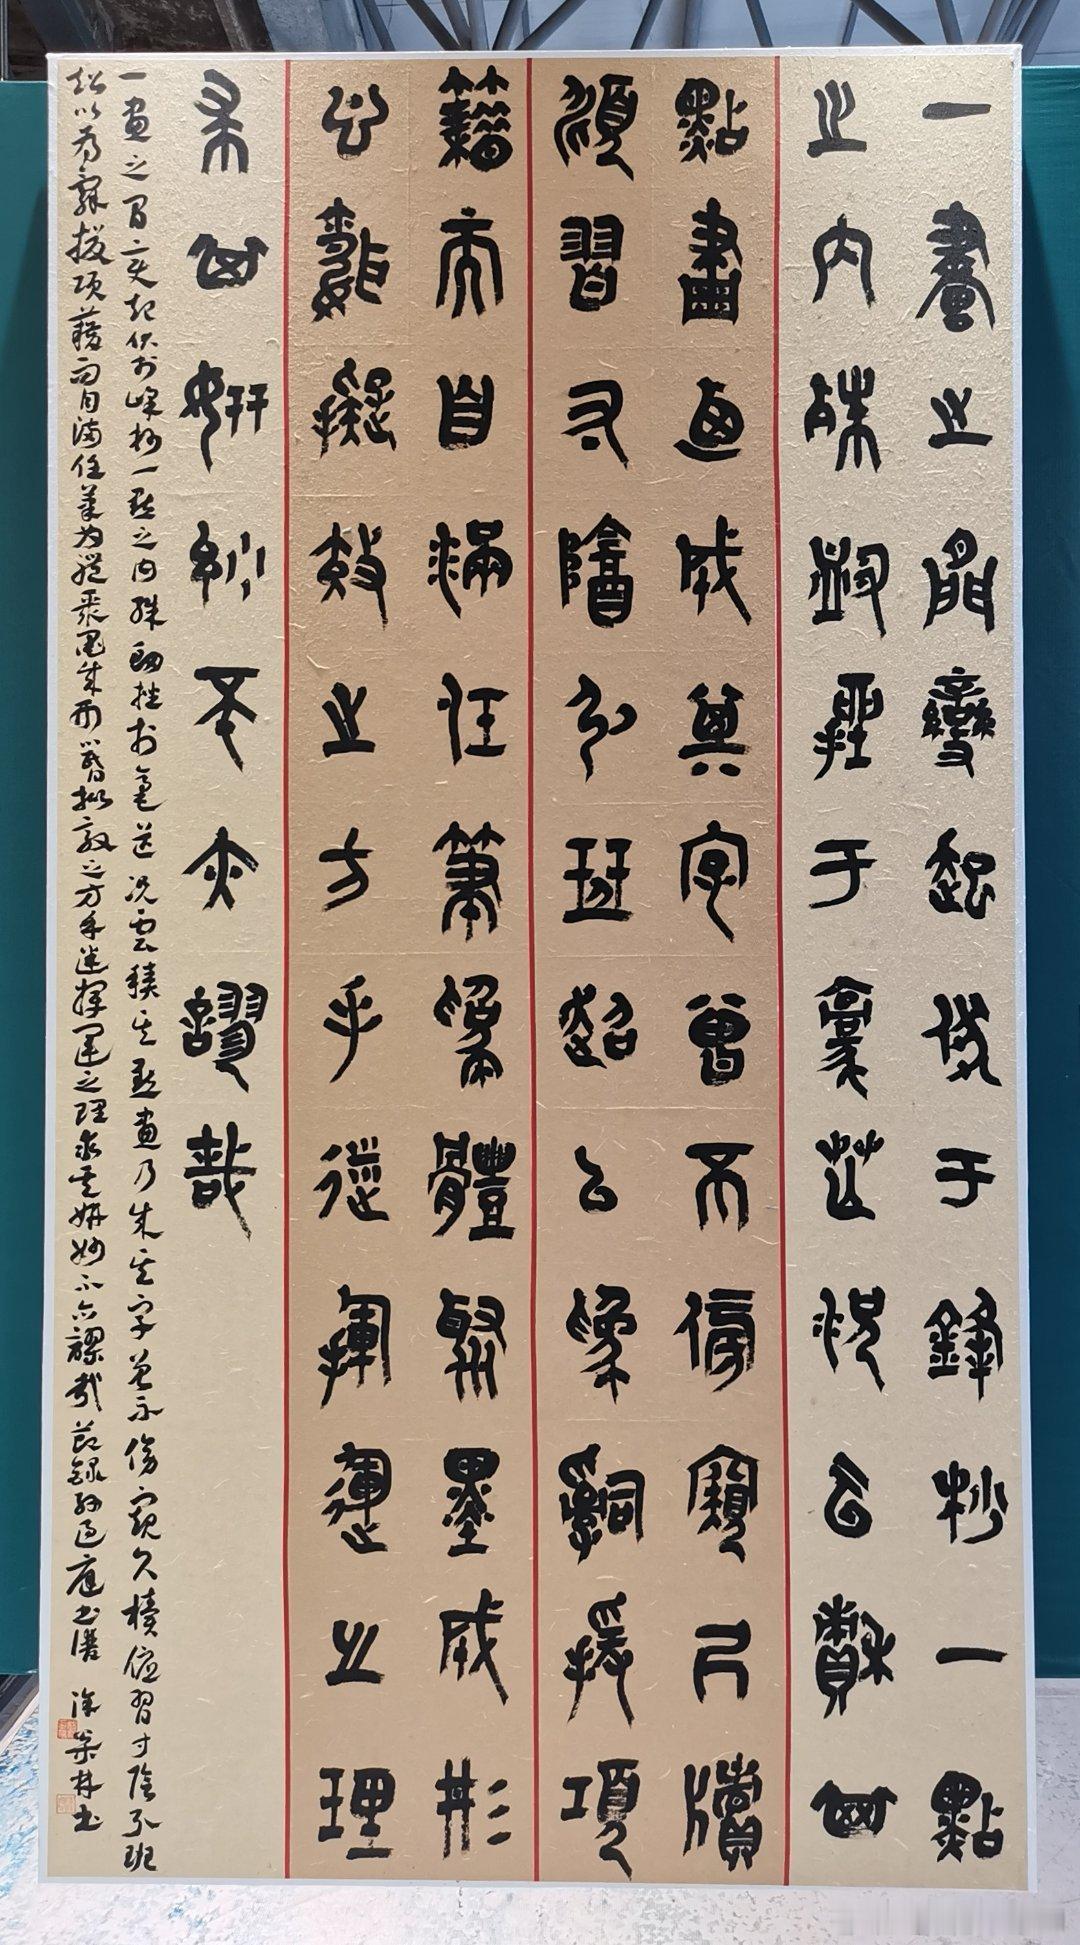 一畫之間變起伏于鋒杪一點
之內殊衄挫于豪芒況云積其
點畫迺成其字曾不傍窺尺牘
頫習寸陰引班超以為辭援項
籍而自滿任筆為體聚墨成形
心昏擬效之方手迷揮運之理
求其妍妙不亦謬哉
一畫之間變起伏於峰杪一點之內殊衄挫於毫芒況云積其點畫乃成其字曾不傍窺尺牘俯習寸陰引班
超以為辭援項籍而自滿任筆為體聚墨成形心昏擬效之方手迷揮運之理求其妍妙不亦謬哉節錄孫過庭書譜 徐榮林書